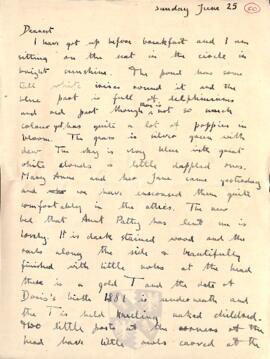 Sunday June 25
50
Dearest
I have got up before breakfast and I am
sitting on the seat in the circle in
bright sunshine. The pond has some
tall white irises round it and the
blue part is full of delphiniums
and red part though not so much
colour yet has quite a lot of poppies in
bloom. The grass is silver green with
dew. The sky is very blue with great
white clouds & little dappled ones.
Mary Anne and her Jane came yesterday
and we have ensconced them quite
comfortably in the attics. The new
bed that Aunt Patty has lent us is
lovely. It is dark stained wood and the
rails along the side & beautifully
finished with little owls at the head
there is a gold T and the date of
birth 1881 is underneath and
the T is held kneeling naked children.
Two little posts at the corners at the
head have little owls carved at the